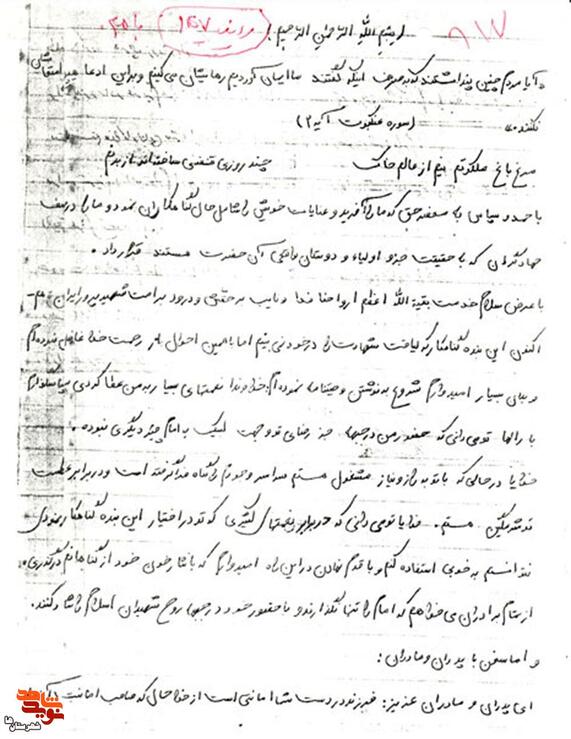 ۸۱۷
بسم الله الرحمن الرحیم
آیا مردم چنین پنداشتند که به صرف اینکه گفتند ما ایمان آوردیم رهایشان می کنیم و بر این ادعا هیچ امتحانشان
نکنند
(سوره عنکبوت آیه ۲)
مرغ باغ ملکوتم نیم از عالم خاک چند روزی قفسی ساخته اند از بدنم
با حمد و سپاس به حق که ما را آفرید و عنایات خویش را شامل حال گناهکاران نمود و ما را در صف
جهادگرانی که به حقیقت جزو اولیاء و دوستان واقعی آن حضرت هستند قرار داد .
با عرض سلام خدمت بقیة الله اعظم ارواحنا فدا و نایب به حقش و درود به امت شهید پرور ایران
اکنون این بنده گناهکار که لیاقت شهادت را در خود نمی بینم اما با همین احوال از رحمت خدا غافل نبوده ام
و بسیار امیدوارم شروع به نوشتن وصیتنامه نموده ام. خداوندا نعمتهای بسیار به من عطا کردی
بارالها تو می دانی که حضور من در جبهه جز رضای تو و جهت لبیک به امام چیز دیگری نبوده .
خدایا در حالی که با تو به راز و نیاز مشغول هستم سراسر وجودم را گناه فرا گرفته است و در برابر عظمت
تو شرمگین هستم . خدایا تو می دانی که در برابر نعمتهای کثیری که تو در اختیار این بنده گناهکار
نتوانستم به خوبی استفاده کنم و با قدم نهادن در این راه امیدوارم که با نثار خون خود از گناهانم درگذری .
از تمام برادران می خواهم که امام را تنها نگذارند و با حضور خود در جبهه روح شهیدان اسلام را شاد کنند .
و اما سخن با پدران و مادران :
ای پدران و مادران عزیز : فرزند در دست شما امانتی است از خدا حال که صاحب امانت
نوید شاهد
شهرستان ها